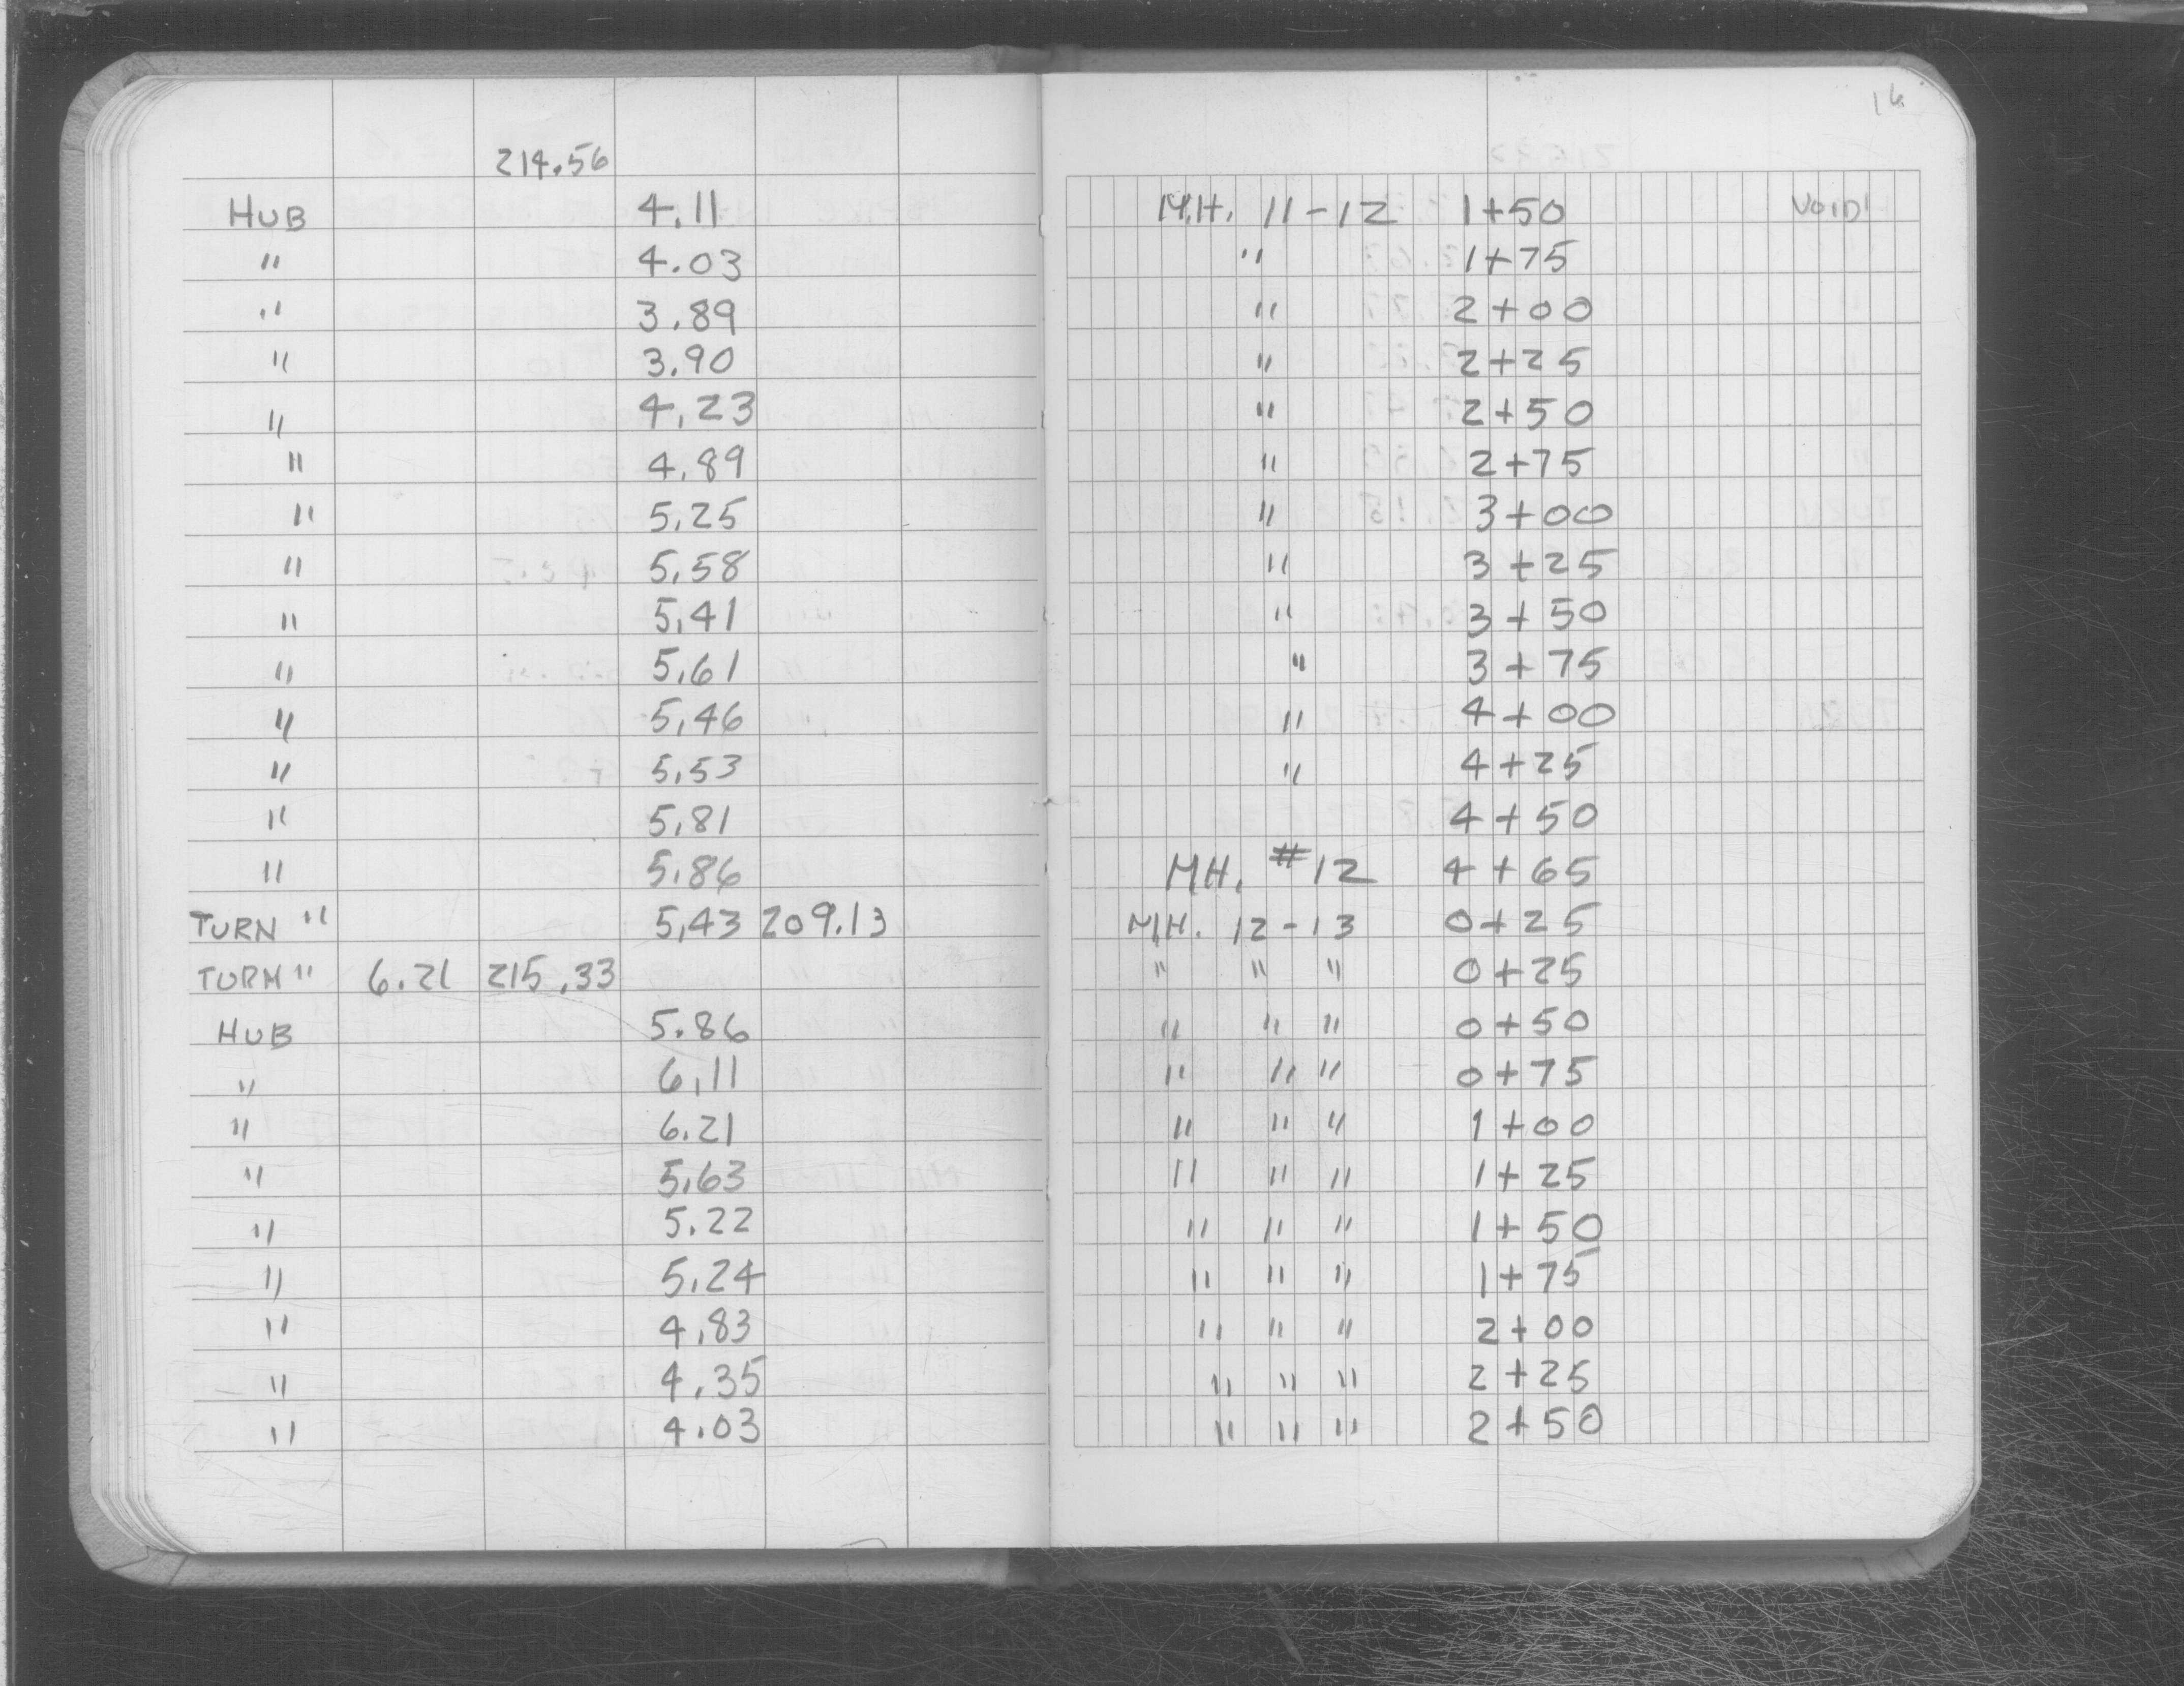 16
214.56
HUB 4.11 M.H. 11-12 1+50 VOID
" 4.03 " 1+75
" 3.89 " 2+00
" 3.90 " 2+25
" 4.23 " 2+50
" 4.89 " 2+75
" 5.25 " 3+00
" 5.58 " 3+25
" 5.41 " 3+50
" 5.61 " 3+75
" 5.46 " 4+00
" 5.53 " 4+25
" 5.81 4+50
" 5.86 MH. #12 4+65
TURN " 5.43 209.13 MH. 12-13 0+25
TURN " 6.21 215.33 " " " 0+25
HUB 5.86 " " " 0+50
" 6.11 " " " 0+75
" 6.21 " " " 1+00
" 5.63 " " " 1+25
" 5.22 " " " 1+50
" 5.24 " " " 1+75
" 4.83 " " " 2+00
" 4.35 " " " 2+25
" 4.03 " " " 2+50